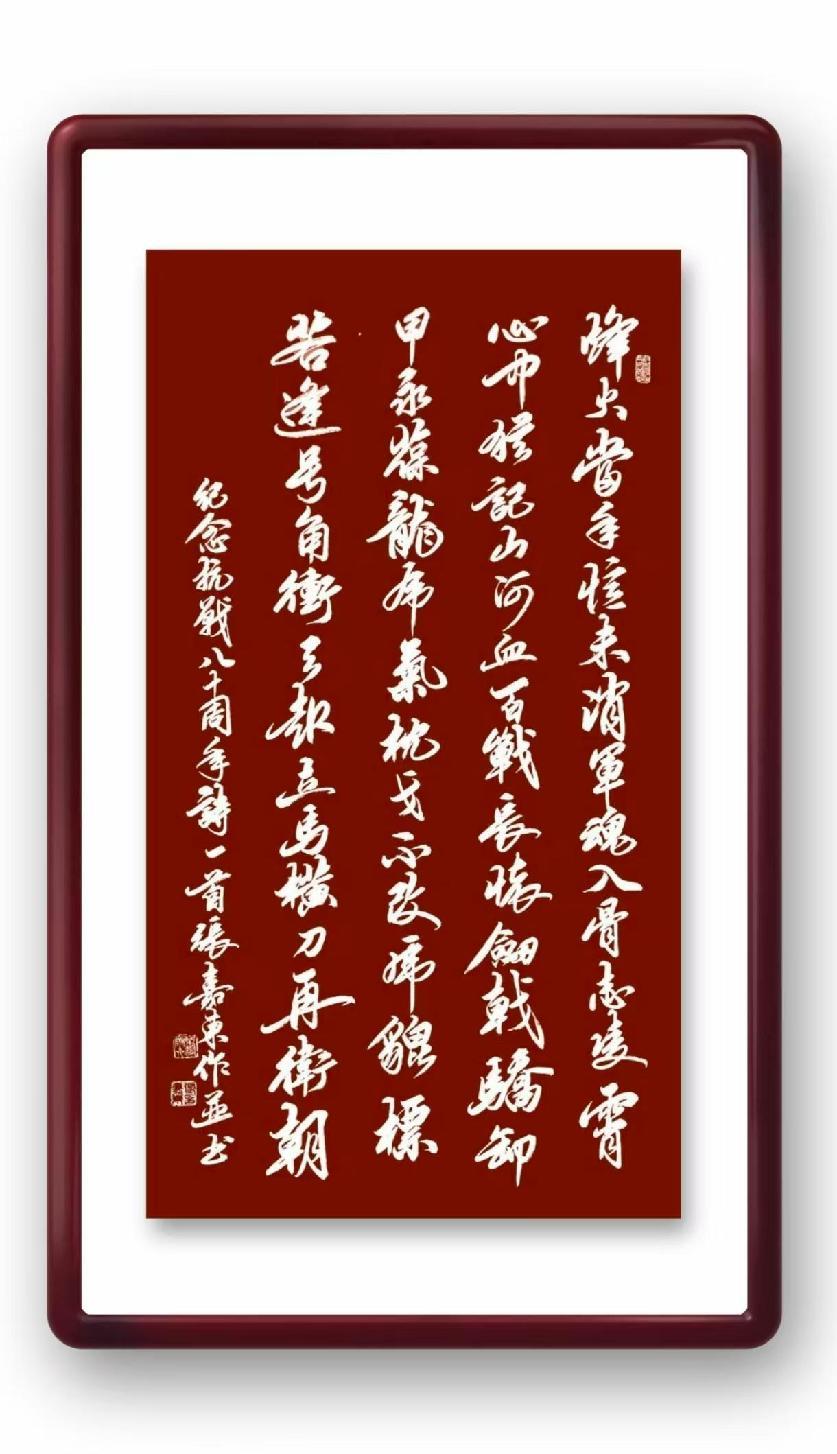 烽火當年憶未消軍魂入骨志凌霄
心中猶記山河血百戰長懷劍戟驕卸
甲永葆龍虎氣枕戈不改虎貔標
若逢号角衝雲起立馬橫刀再衛朝
紀念抗戰八十周年詩一首張嘉東作並书